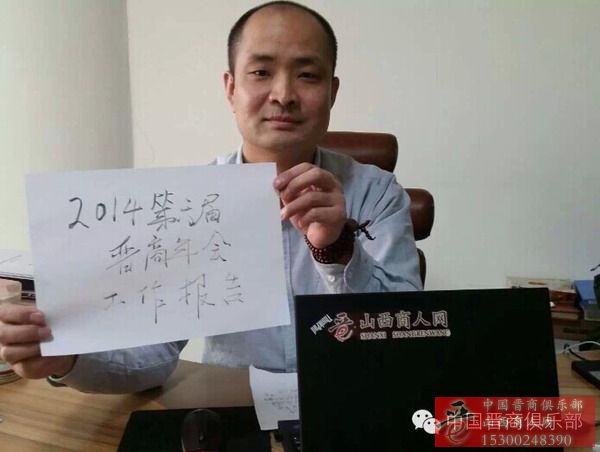 2014第六届
晋商年会
工作报告
晋 山西商人网
SHANXI SHANGRENWANG
中国晋商俱乐部
中国晋商俱乐部
山西商人网
15300248390